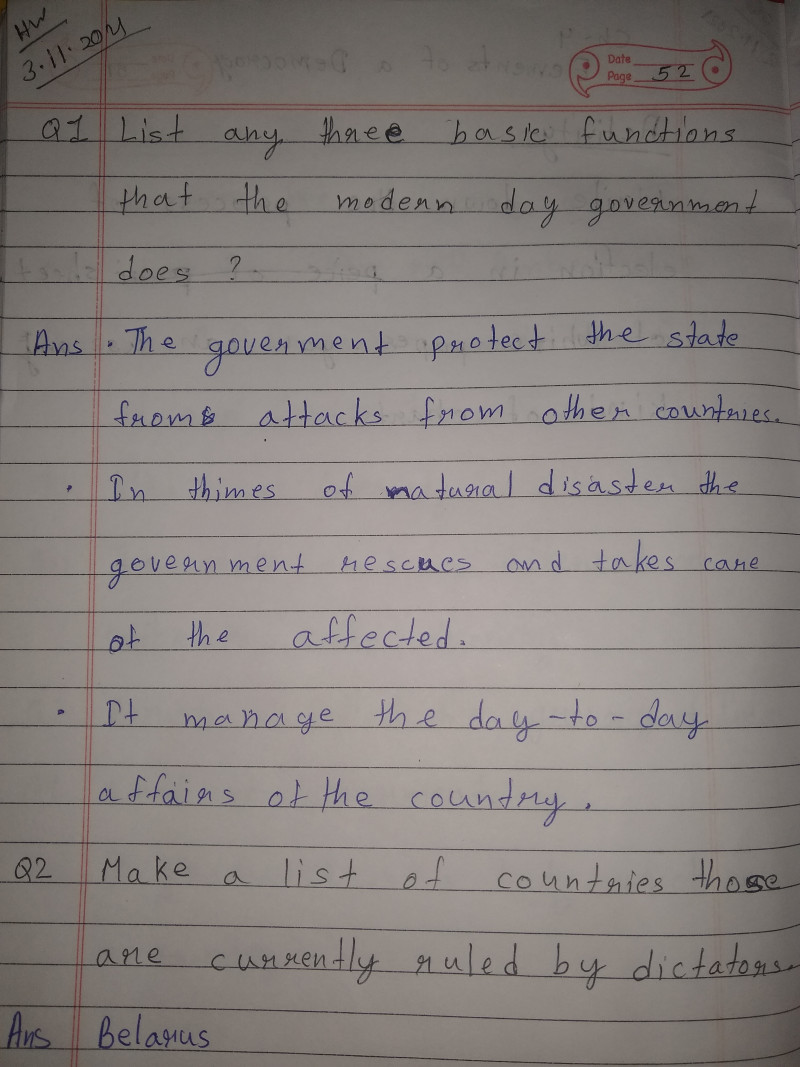 HW
3.11.2021
Date
Page 52
Q1 List any three basic functions
that the modern day government
does ?
Ans • The goverment protect the state
from attacks from other countries.
• In thimes of natural disaster the
government rescues and takes care
of the affected.
• It manage the day-to-day
affairs of the country.
Q2 Make a list of countries those
are currently ruled by dictators.
Ans Belarus